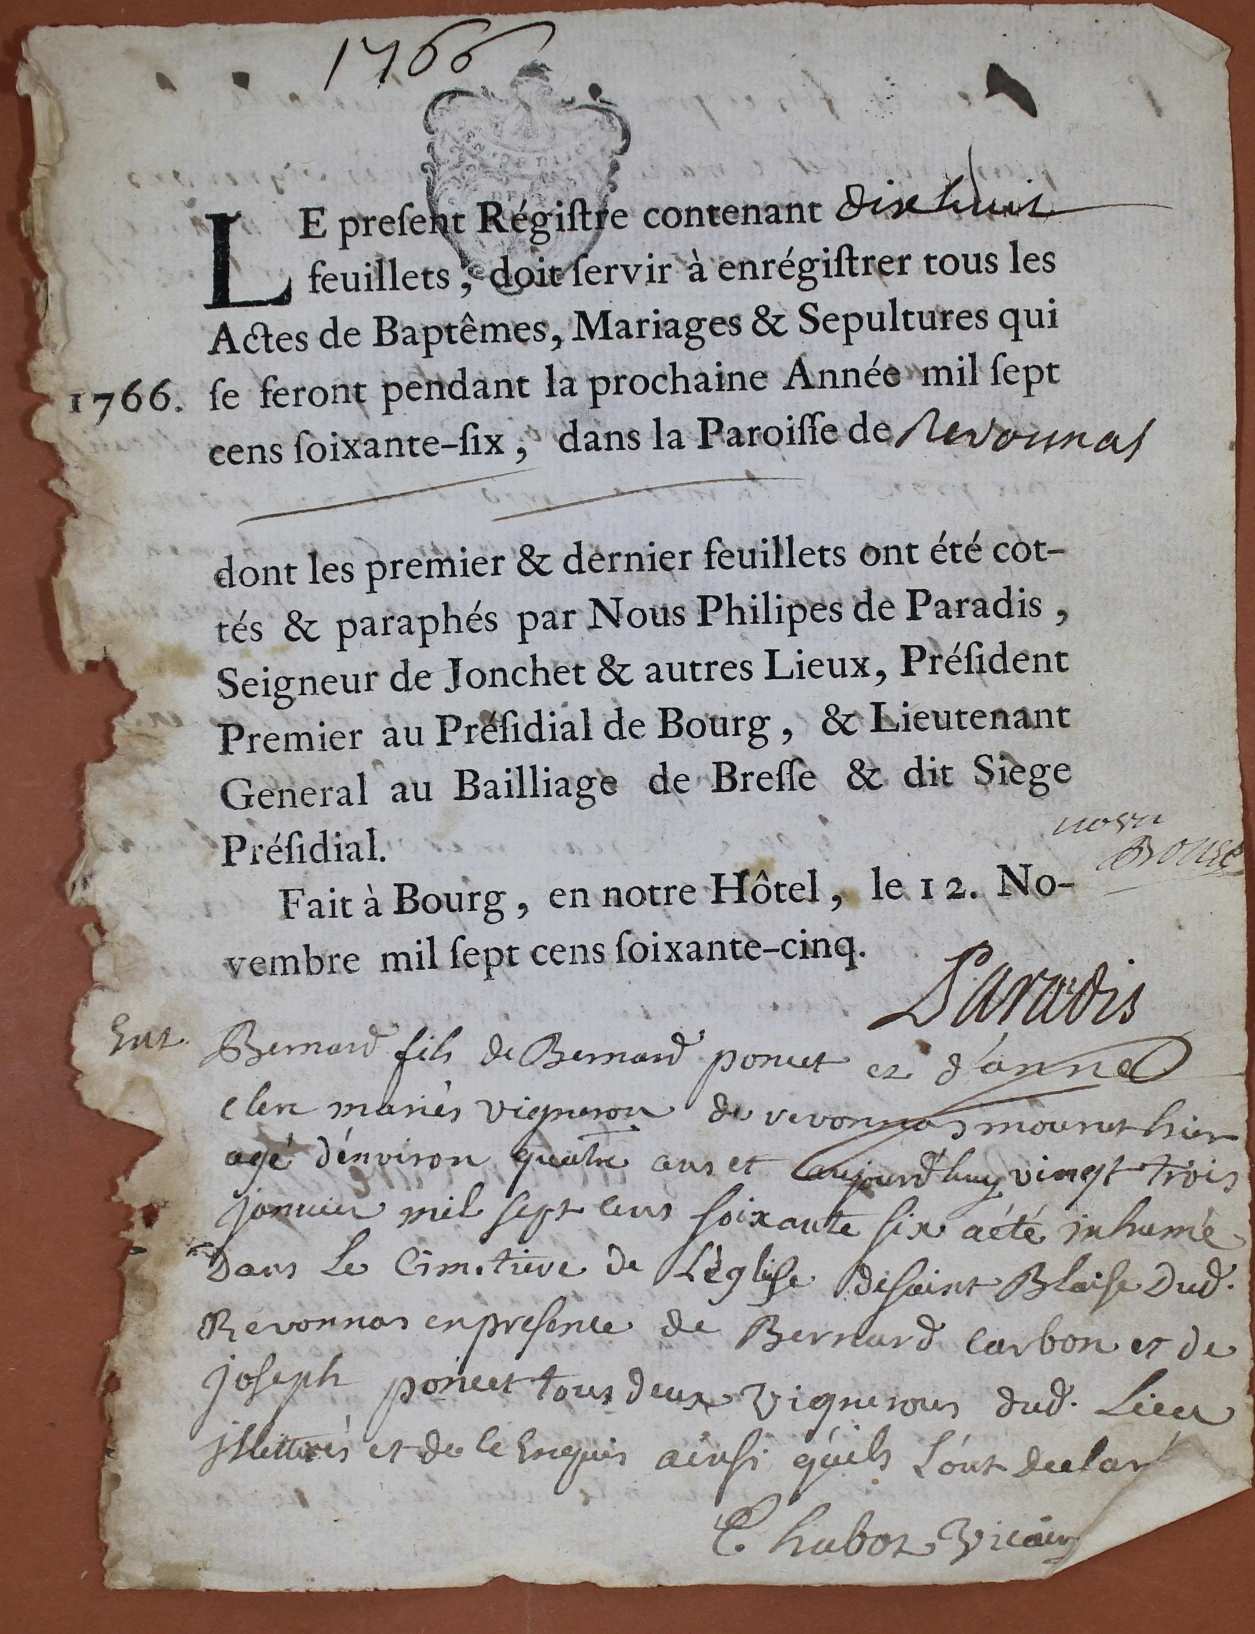 1766
LE preſent Régiſtre contenant dixhuit
feuillets, doit ſervir à enrégiſtrer tous les
Actes de Baptêmes, Mariages & Sepultures qui
1766. ſe feront pendant la prochaine Année mil ſept
cens ſoixante-ſix, dans la Paroiſſe de Revonnas
dont les premier & dernier feuillets ont été cot-
tés & paraphés par Nous Philipes de Paradis,
Seigneur de Jonchet & autres Lieux, Préſident
Premier au Préſidial de Bourg, & Lieutenant
General au Bailliage de Breſſe & dit Siege
Préſidial.
Fait à Bourg, en notre Hôtel, le 12. No-
vembre mil ſept cens ſoixante-cinq.
Paradis
Ent. Bernard fils de Bernard poncet et d'anne
clerc mariés vigneron de revonnas mourut hier
agé d'énviron quatre ans et aujourd'huy vingt trois
janvier mil sept cens soixante six a été inhumé
Dans Le Cimetiere de L'églisse de saint Blaise Dud.
Revonnas en presence de Bernard Carbon et de
joseph poncet tous deux vignerons dud. Lieu
jllettrés et de ce Enquis ainsi qu'ils L'ont declar
Chabot Vicair